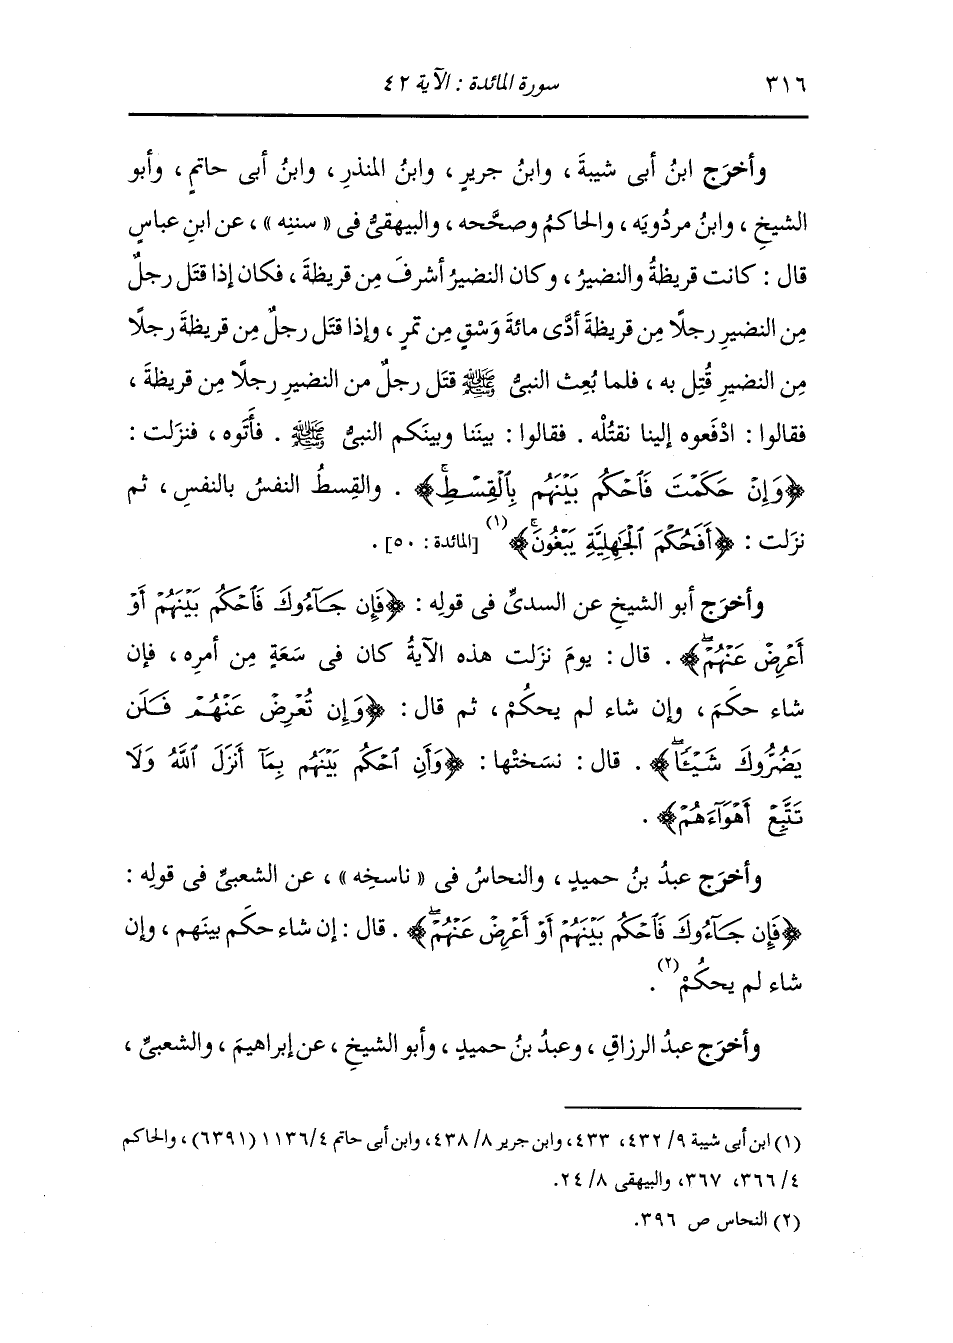 ٣١٦ سورة المائدة : الآية ٤٢
وأخرَج ابنُ أبى شيبةَ ، وابنُ جريرٍ ، وابنُ المنذرِ ، وابنُ أبى حاتمٍ ، وأبو
الشيخِ ، وابنُ مردُويَه ، والحاكمُ وصحَّحه ، والبيهقىُّ فى « سننِه » ، عن ابنِ عباسٍ
قال : كانت قريظةُ والنضيرُ ، وكان النضيرُ أشرفَ مِن قريظةَ ، فكان إذا قتَل رجلٌ
مِن النضيرِ رجلًا مِن قريظةَ أدَّى مائةَ وَسْقٍ مِن تمرٍ ، وإذا قتَل رجلٌ مِن قريظةَ رجلًا
مِن النضيرِ قُتِل به ، فلما بُعِث النبىُّ ﷺ قتَل رجلٌ من النضيرِ رجلًا مِن قريظةَ ،
فقالوا : ادْفَعوه إلينا نقتُلْه . فقالوا : بينَنا وبينَكم النبىُّ ﷺ . فأَتَوه ، فنزَلت :
﴿وَإِنْ حَكَمْتَ فَٱحْكُم بَيْنَهُم بِٱلْقِسْطِۚ﴾ . والقِسطُ النفسُ بالنفسِ ، ثم
نزَلت : ﴿أَفَحُكْمَ ٱلْجَٰهِلِيَّةِ يَبْغُونَۚ﴾(١) [المائدة : ٥٠] .
وأخرَج أبو الشيخِ عن السدىِّ فى قولِه : ﴿فَإِن جَآءُوكَ فَٱحْكُم بَيْنَهُمْ أَوْ
أَعْرِضْ عَنْهُمْۖ﴾ . قال : يومَ نزَلت هذه الآيةُ كان فى سَعَةٍ مِن أمرِه ، فإن
شاء حكَمَ ، وإن شاء لم يحكُمْ ، ثم قال : ﴿وَإِن تُعْرِضْ عَنْهُمْ فَلَن
يَضُرُّوكَ شَيْـًٔاۖ﴾ . قال : نسَختْها : ﴿وَأَنِ ٱحْكُم بَيْنَهُم بِمَآ أَنزَلَ ٱللَّهُ وَلَا
تَتَّبِعْ أَهْوَآءَهُمْ﴾ .
وأخرَج عبدُ بنُ حميدٍ ، والنحاسُ فى « ناسخِه » ، عن الشعبىِّ فى قولِه :
﴿فَإِن جَآءُوكَ فَٱحْكُم بَيْنَهُمْ أَوْ أَعْرِضْ عَنْهُمْۖ﴾ . قال : إن شاء حكَم بينَهم ، وإن
شاء لم يحكُمْ(٢) .
وأخرَج عبدُ الرزاقِ ، وعبدُ بنُ حميدٍ ، وأبو الشيخِ ، عن إبراهيمَ ، والشعبىِّ ،
(١) ابن أبى شيبة ٩/ ٤٣٢، ٤٣٣، وابن جرير ٨/ ٤٣٨، وابن أبى حاتم ٤/ ١١٣٦ (٦٣٩١) ، والحاكم
٤/ ٣٦٦، ٣٦٧، والبيهقى ٨/ ٢٤.
(٢) النحاس ص ٣٩٦.